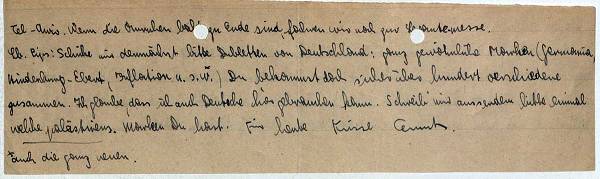 Tel-Aviv. Wenn die Unruhen bald zu Ende sind, fahren wir noch zur Levantemesse.
Lb. : Schicke mir demnächst bitte Dubletten von Deutschland; ganz gewöhnliche Marken (Germania,
Hindenburg-Ebert, Inflation u.s.w.) Du bekommst doch sicher hundert verschiedene
zusammen. Ich glaube, dass ich auch Deutsche hier gebrauchen kann. Schreib' mir ausserdem bitte einmal
welche palästinens. Marken Du hast. Für heute Küsse
+auch die ganz neuen.